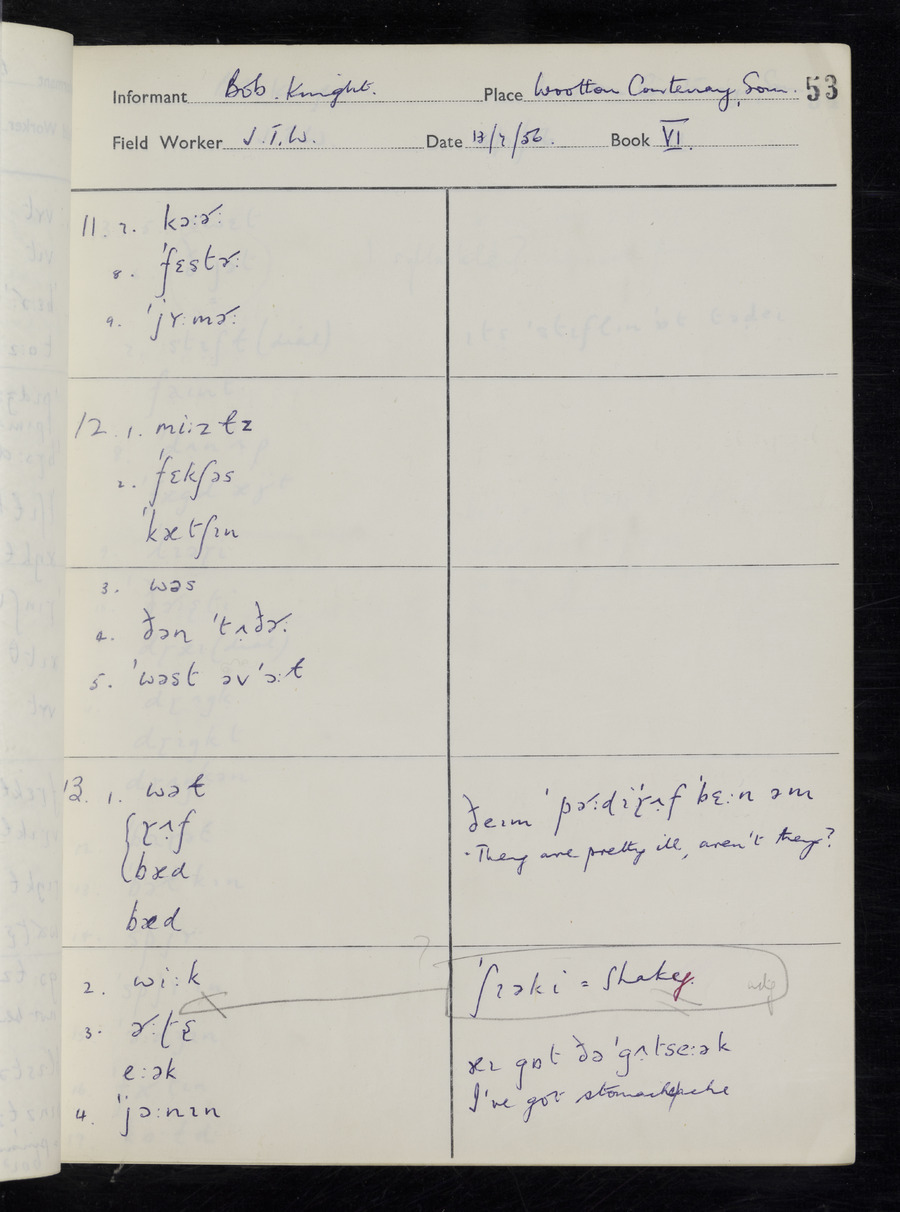 Informant Bob. Knight. Place Wootton Courtenay, Som. 53
Field Worker J.T.W. Date 13/7/56. Book VI.
11. 7. kɔːɚː
8. ˈfɛstɚː
9. ˈjʏːmɚː
12. 1. miːztz
2. ˈfɛkʃəs
ˈkætʃɪn
3. wəs
4. ðən ˈtʌðɚː
5. ˈwəst əvˈɔːt
13. 1. wət
ɣʌf
bæd
bæd
ðeɪm ˈpɚːdiˈɣʌf ˈbɛːn əm
·They are pretty ill, aren't they?
2. wiːk
ˈʃɪəki = Shakey. adj
3.
eːək
æɪ gɒt ðə ˈgʌtseːək
I've got stomach/ache
4. ˈjɔːnɪn